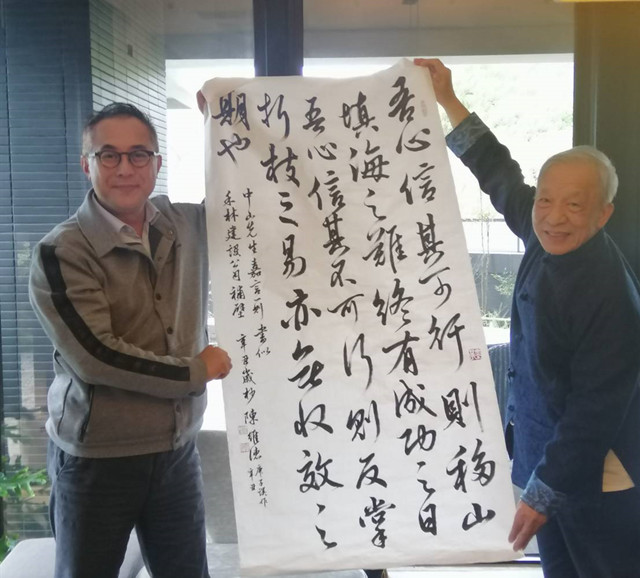 吾心信其可行則移山
填海之難終有成功之日
吾心信其不可行則反掌
折枝之易亦無收效之
期也
中山先生嘉言一則書似
林建設公司補壁 辛丑歲杪 陳維德
庚子誤作
辛丑